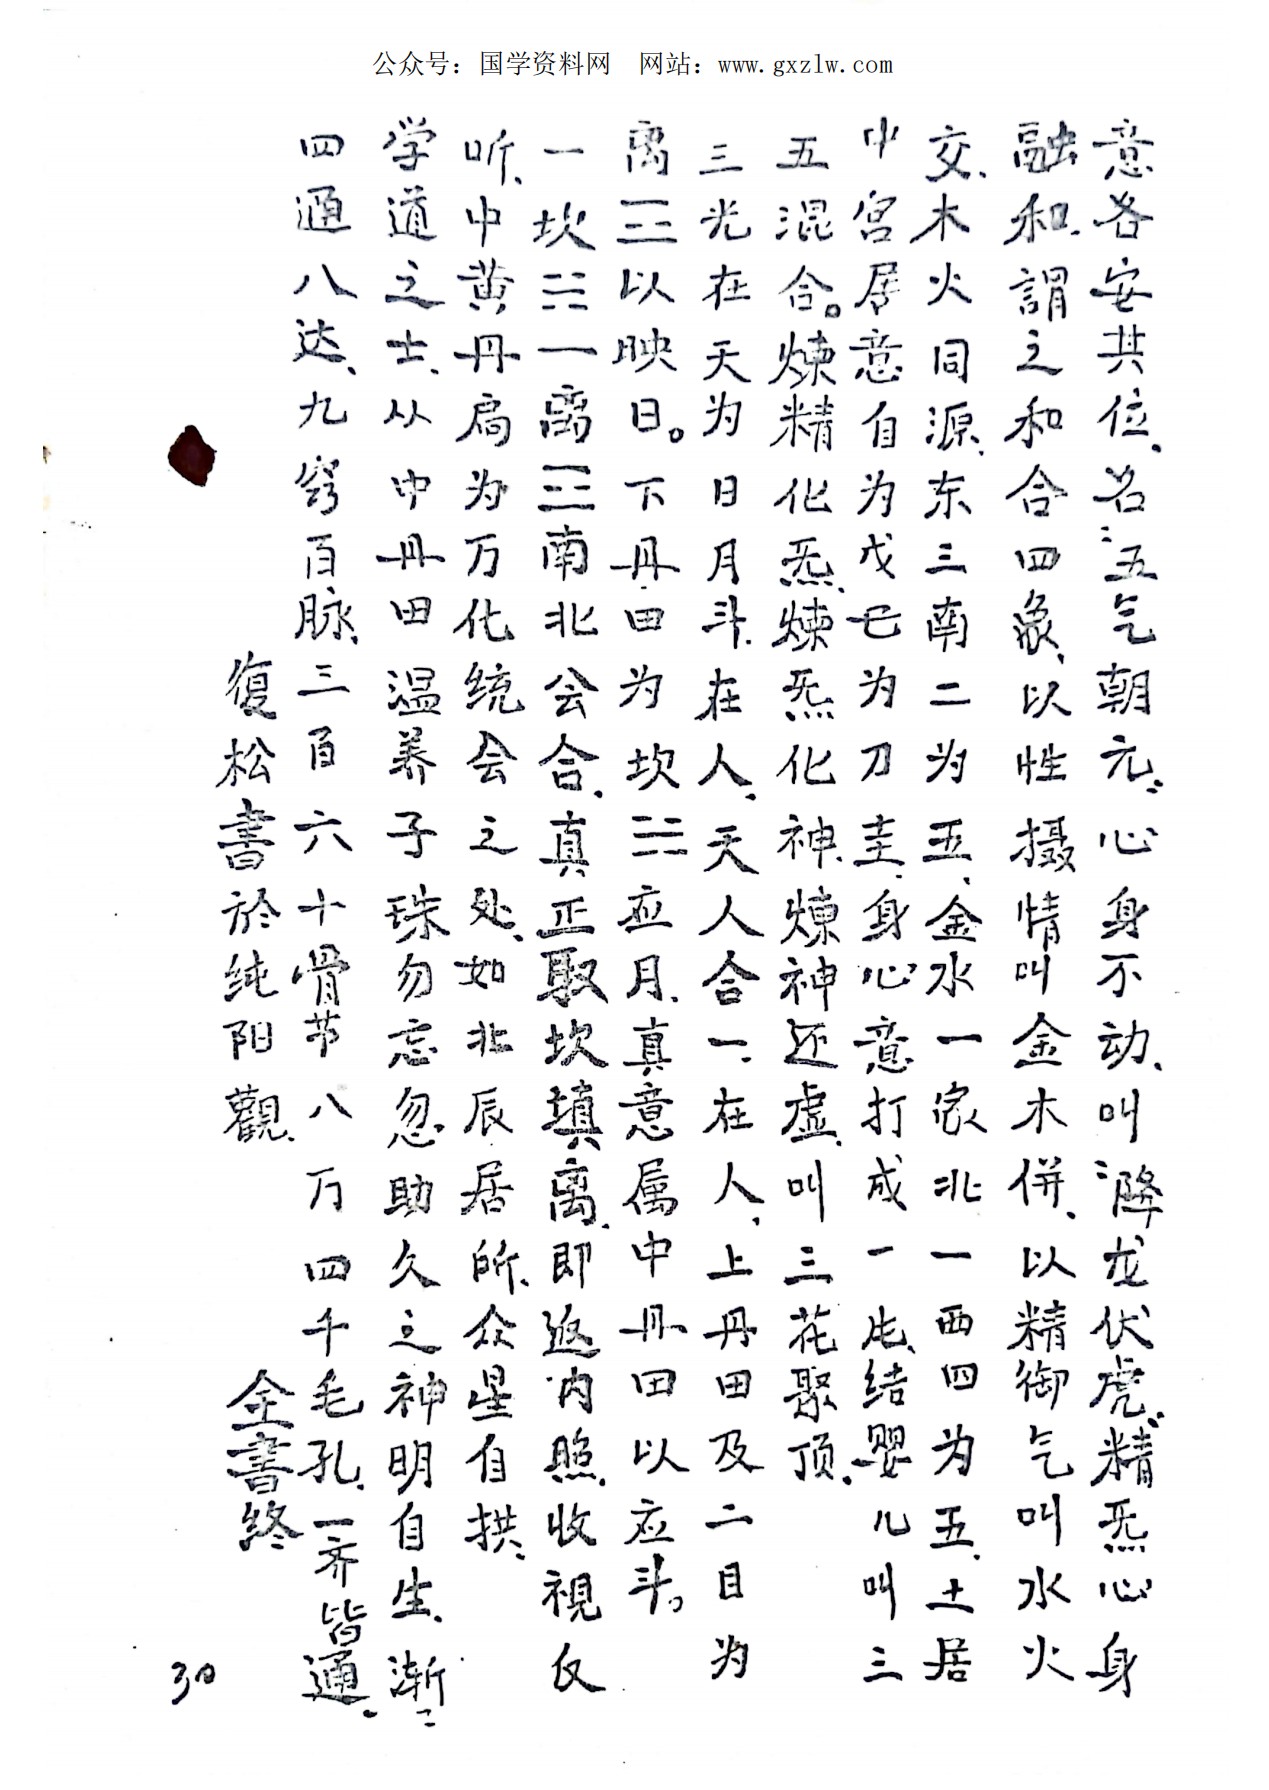 公众号：国学资料网　网站：www.gxzlw.com
意各安其位、名："五气朝元"。心身不动、叫："降龙伏虎"。精炁心身
融和、謂之和合四象、以性摄情叫金木併、以精御气叫水火
交、木火同源、东三南二为五、金水一家北一西四为五、土居
中宫居意自为戊己为刀圭、身心意打成一片、结婴儿叫三
五混合。煉精化炁、煉炁化神、煉神还虚、叫三花聚顶、
三光在天为日月斗、在人、天人合一、在人、上丹田及二目为
离☲以映日。下丹田为坎☵应月、真意属中丹田以应斗。
一坎☵一离☲南北会合、真正取坎填离、即返内照、收視反
听、中黄丹扃为万化统会之处、如北辰居所、众星自拱、
学道之士、从中丹田温养子珠勿忘忽助久之神明自生、渐〻
四通八达、九窍百脉、三百六十骨节八万四千毛孔、一齐皆通。
復松書於纯阳觀、
全書终
30